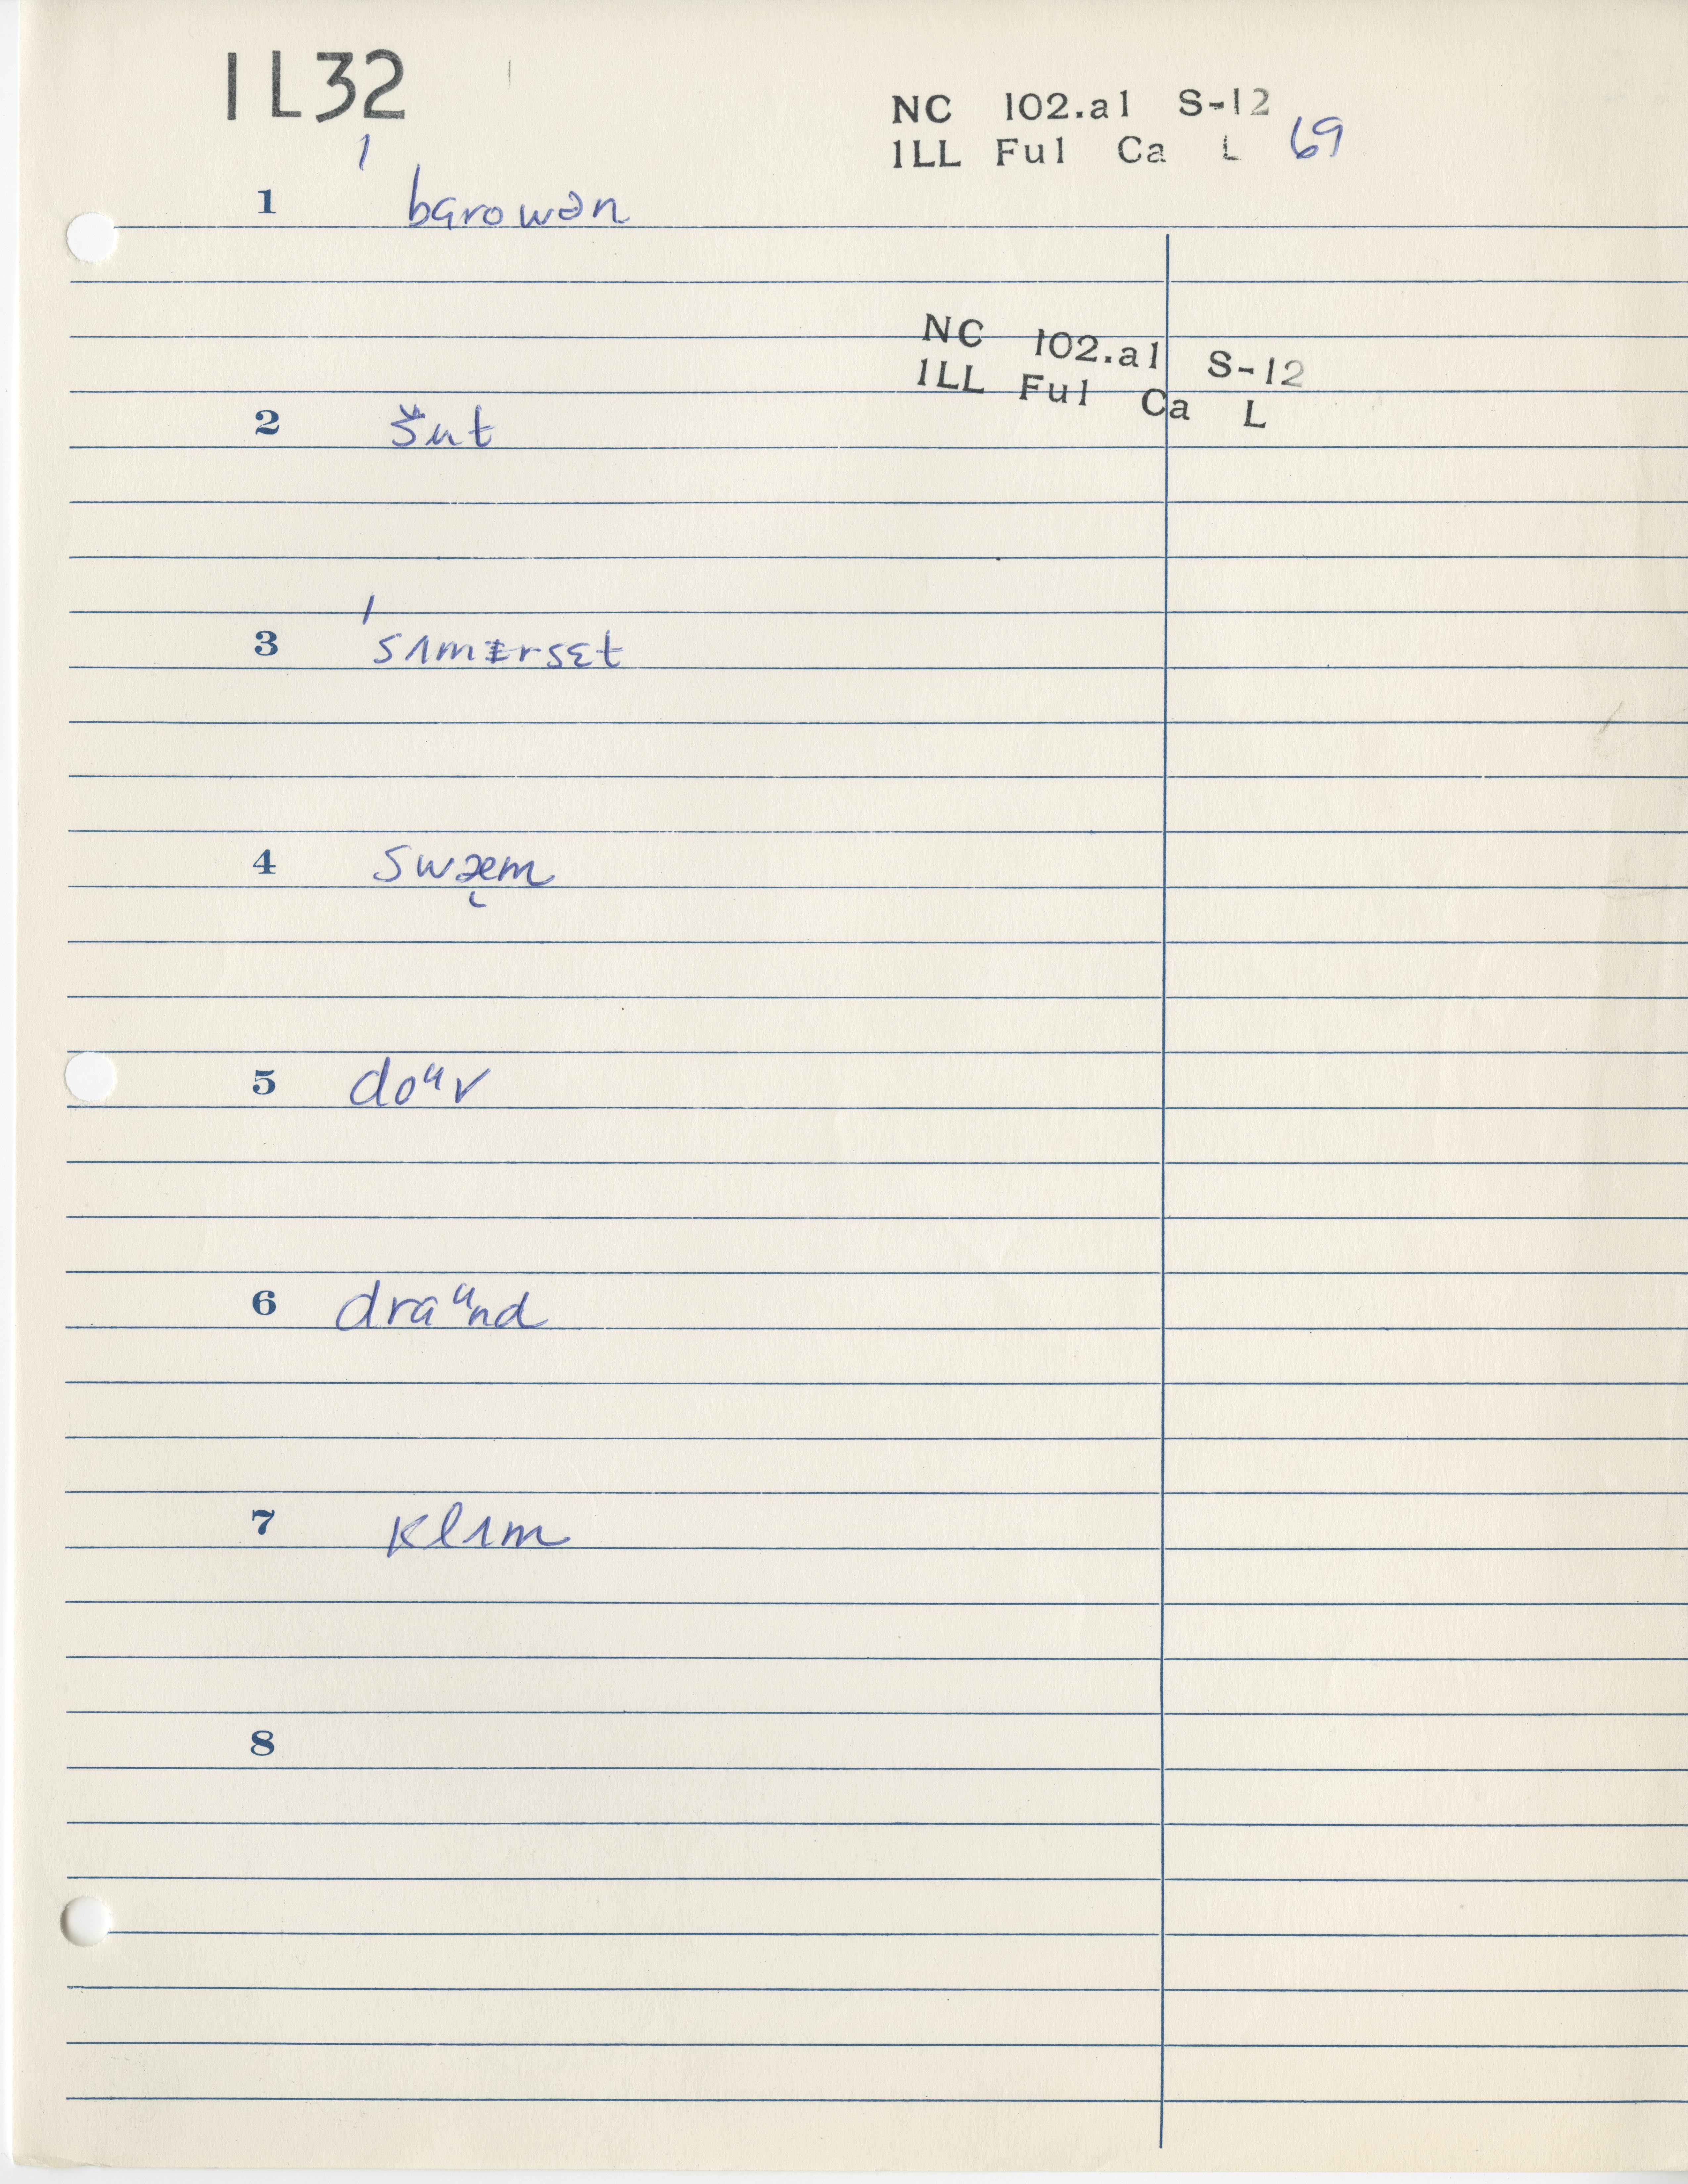 1L32
NC 102.a1 S-12
ILL Ful Ca L 69
1 ˈbɑrowən
NC 102.a1 S-12
ILL Ful Ca L
2 šut
3 ˈsʌmɨrsɛt
4 swæ̨m
5 doᵘv
6 draᵘnd
7 klɪm
8